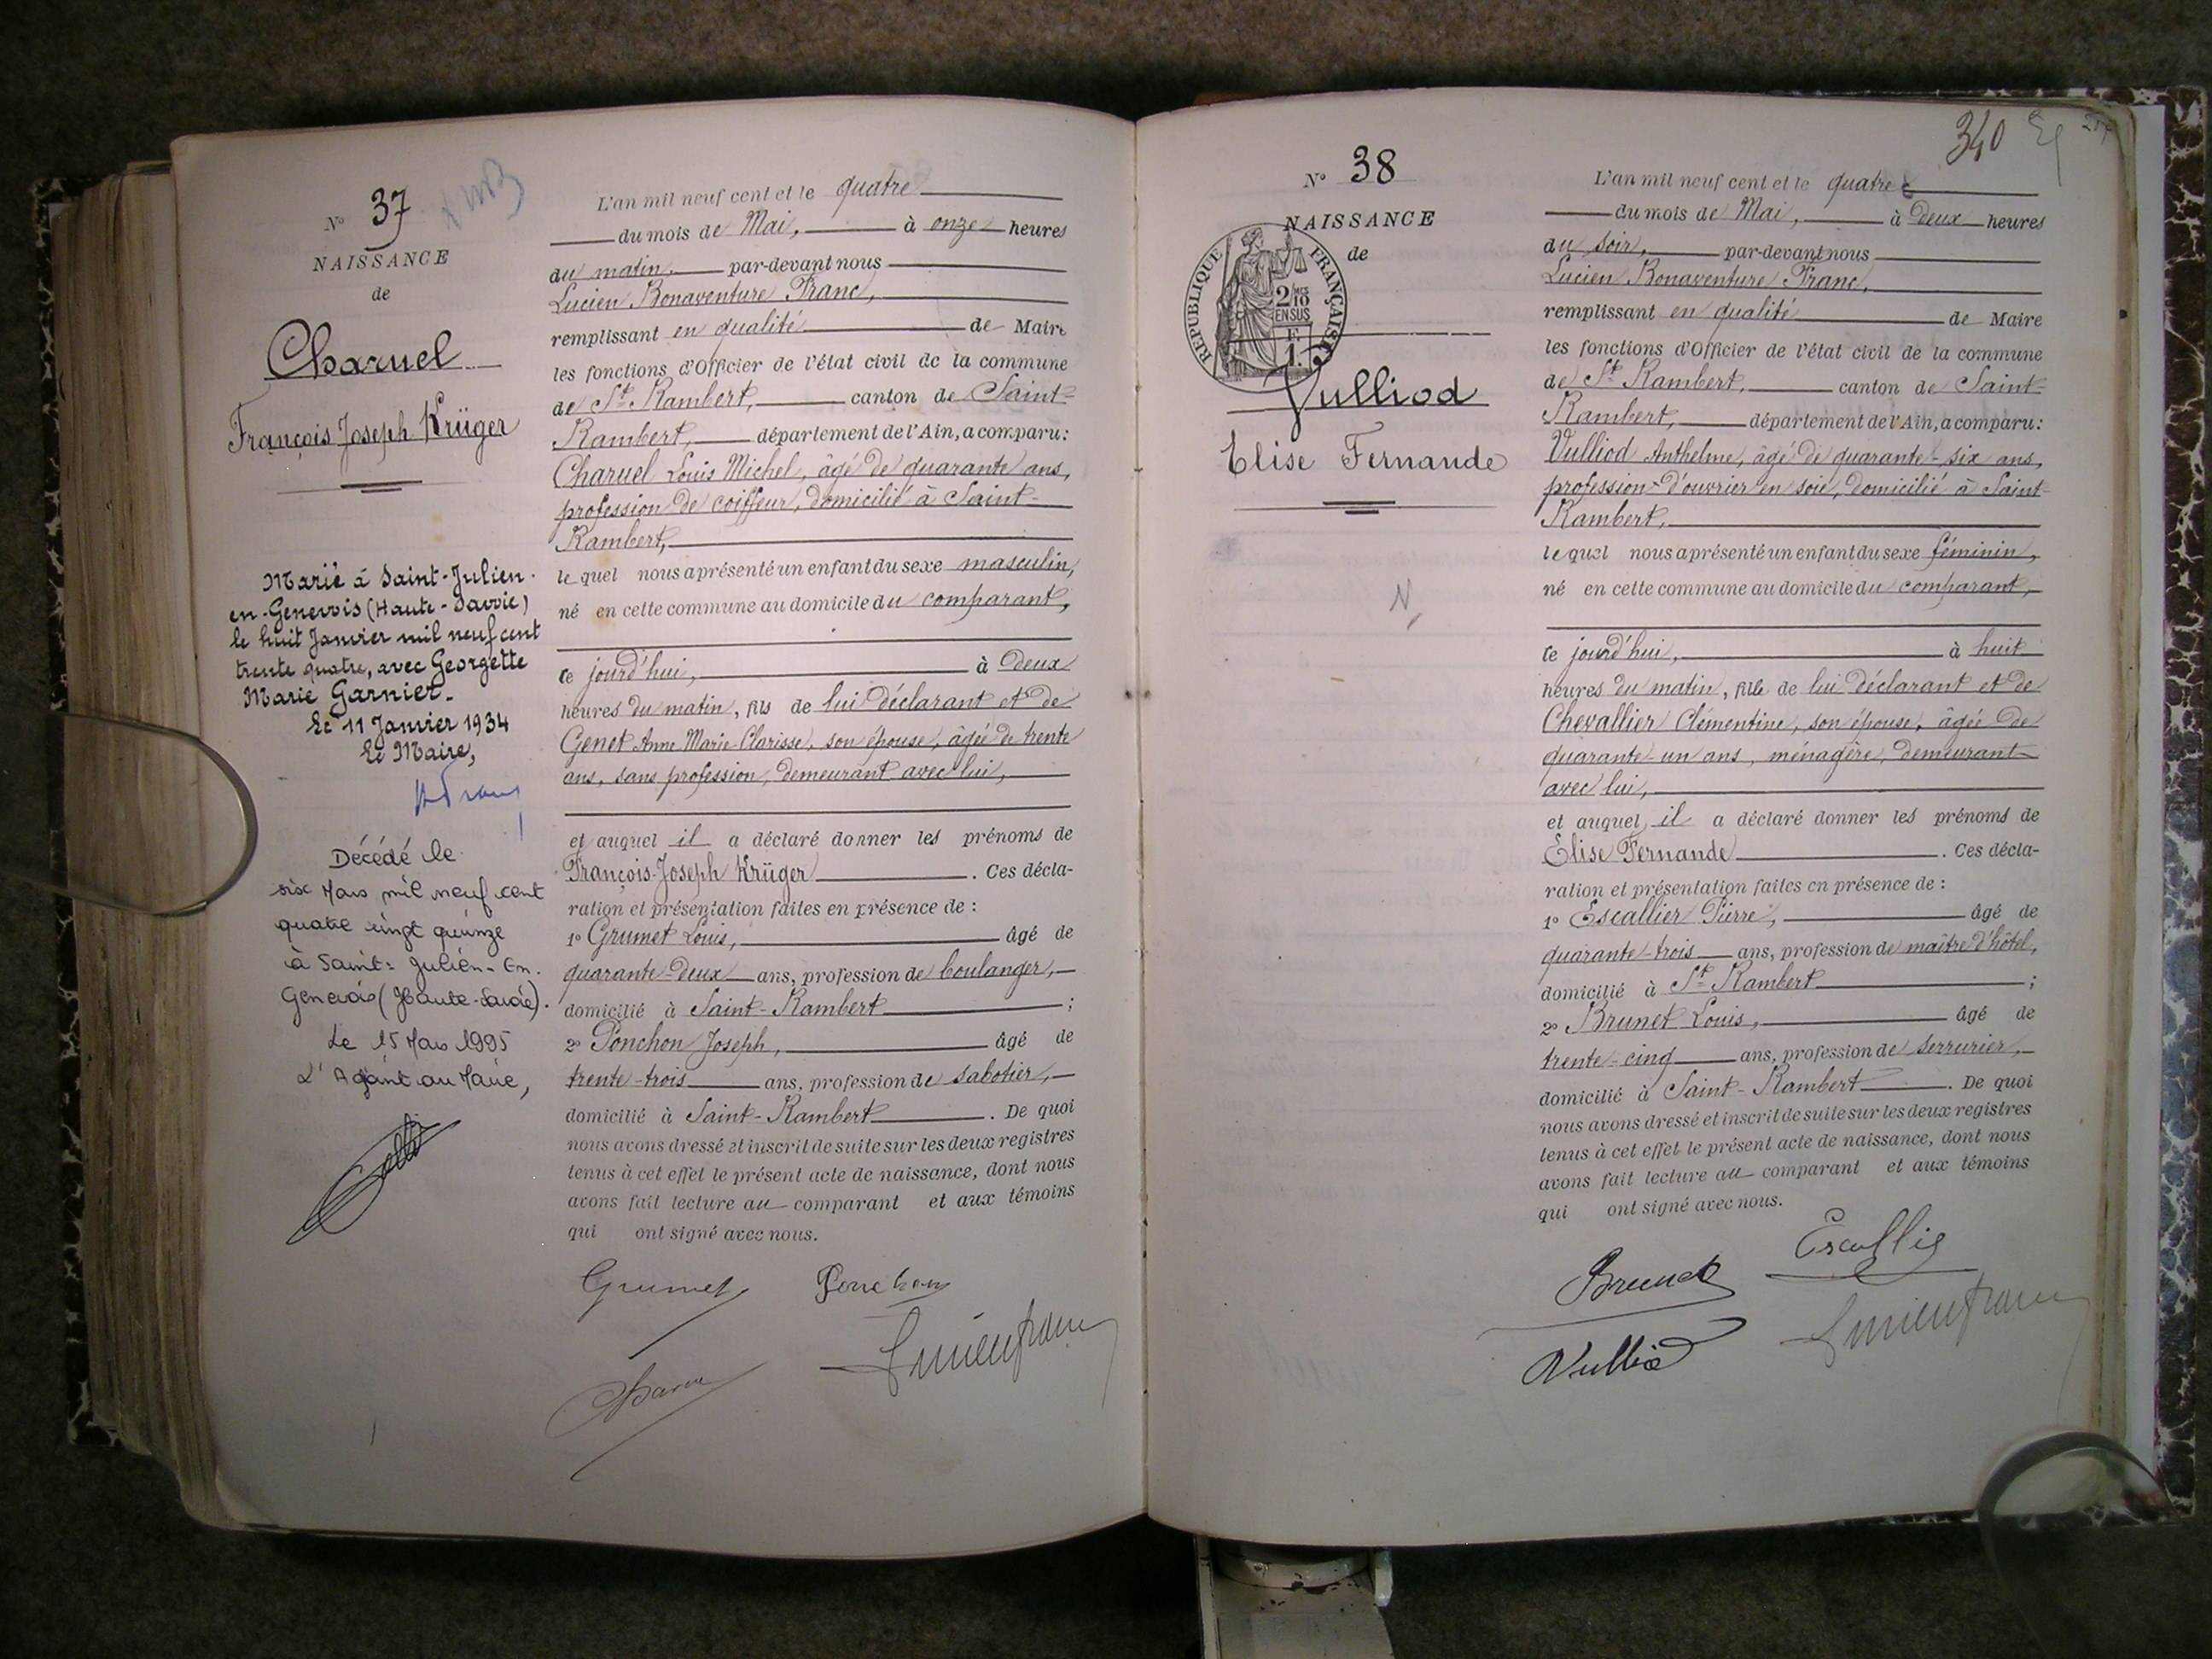 N° 37
NAISSANCE
de
Charuel
François Joseph Krüger
Marié à Saint-Julien-
en-Genevois (Haute-Savoie)
le huit Janvier mil neuf cent
trente quatre, avec Georgette
Marie Garnier.
Le 11 Janvier 1934
Le Maire,
Décédé le
six Mars mil neuf cent
quatre vingt quinze
à Saint-Julien-En-
Genevois (Haute-Savoie).
Le 15 Mars 1995
L'Adjoint au Maire,
L'an mil neuf cent et le quatre
du mois de Mai, à onze heures
du matin, par-devant nous
Lucien Bonaventure Franc,
remplissant en qualité de Maire
les fonctions d'Officier de l'état civil de la commune
de St Rambert, canton de Saint-
Rambert, département de l'Ain, a comparu:
Charuel Louis Michel, âgé de quarante ans,
profession de coiffeur, domicilié à Saint-
Rambert,
lequel nous a présenté un enfant du sexe masculin,
né en cette commune au domicile du comparant,
ce jourd'hui, à deux
heures du matin, fils de lui déclarant et de
Genet Anne Marie-Clarisse, son épouse, âgée de trente
ans, sans profession, demeurant avec lui,
et auquel il a déclaré donner les prénoms de
François-Joseph Krüger. Ces décla-
ration et présentation faites en présence de :
1° Grumet Louis, âgé de
quarante-deux ans, profession de boulanger,
domicilié à Saint-Rambert ;
2° Ponchon Joseph, âgé de
trente-trois ans, profession de sabotier,
domicilié à Saint-Rambert. De quoi
nous avons dressé et inscrit de suite sur les deux registres
tenus à cet effet le présent acte de naissance, dont nous
avons fait lecture au comparant et aux témoins
qui ont signé avec nous.
Grumet Ponchon
Lucien franc
340
N° 38
NAISSANCE
de
REPUBLIQUE FRANÇAISE
2/10 EN SUS
F. 1.
Vulliod
Elise Fernande
N
L'an mil neuf cent et le quatre
du mois de Mai, à deux heures
du soir, par-devant nous
Lucien Bonaventure Franc,
remplissant en qualité de Maire
les fonctions d'Officier de l'état civil de la commune
de St Rambert, canton de Saint-
Rambert, département de l'Ain, a comparu:
Vulliod Anthelme, âgé de quarante-six ans,
profession d'ouvrier en soie, domicilié à Saint-
Rambert,
lequel nous a présenté un enfant du sexe féminin,
né en cette commune au domicile du comparant,
ce jourd'hui, à huit
heures du matin, fille de lui déclarant et de
Chevallier Clémentine, son épouse, âgée de
quarante-un ans, ménagère, demeurant
avec lui,
et auquel il a déclaré donner les prénoms de
Elise Fernande. Ces décla-
ration et présentation faites en présence de :
1° Escallier Pierre, âgé de
quarante-trois ans, profession de maître d'hôtel,
domicilié à St Rambert ;
2° Brunet Louis, âgé de
trente-cinq ans, profession de serrurier,
domicilié à Saint-Rambert. De quoi
nous avons dressé et inscrit de suite sur les deux registres
tenus à cet effet le présent acte de naissance, dont nous
avons fait lecture au comparant et aux témoins
qui ont signé avec nous.
Brunet Escallie
Vulliod Lucien franc